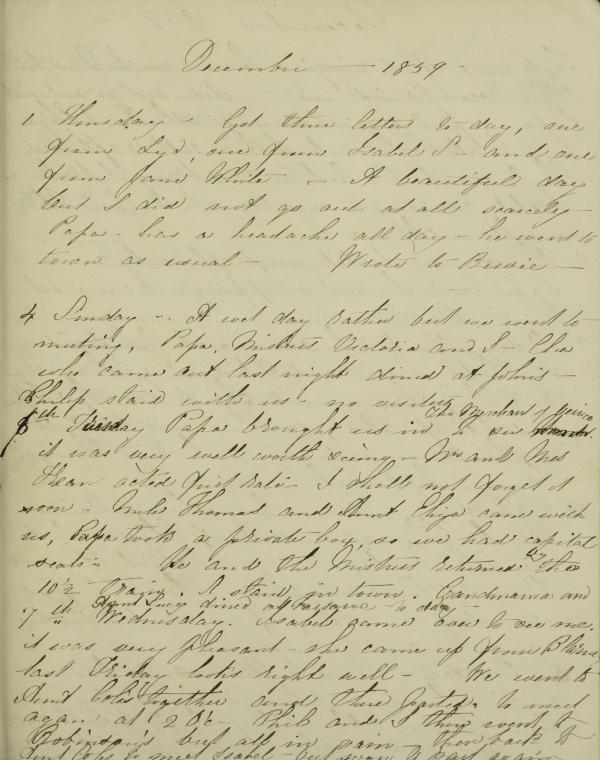 December — 1859 -
1 Thursday - Got three letters to day, one
from Lyd, one from Isabel S - and one
from Jane White - A beautiful day
but I did not go out at all scarcely -
Papa - has a headache all day - he went to
town as usual - Wrote to Bessie -
4 Sunday - A wet day rather but we went to
meeting, Papa, Mistress Victoria and I -
who came out last night dined at John's -
Philip staid with us - no visitors
The Merchant of Venice
6th Tuesday Papa brought us in to see
it was very well worth seeing - Mr and Mrs
Kean acted first rate - I shall not forget it
soon - Uncle Thomas and Aunt Eliza came with
us, Papa took a private box, so we had capital
seats - He and the Mistress returned by the
10 1/2 train. I staid in town. Grandmama and
Aunt Lucy dined at to day -
7th Wednesday. Isabel came over to see me.
it was very pleasant - she came up from
last Friday looks right well - We went to
Aunt together and there parted. to meet
again at 2 O'c - Phil and I then went to
Robinson's but all in vain - then back to
Aunt to meet Isabel - but